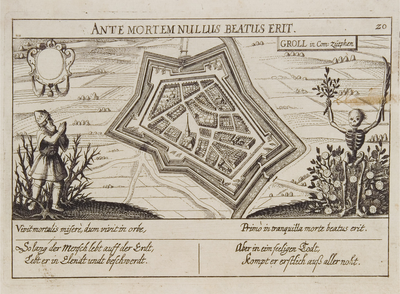 ANTE MORTEM NULLUS BEATUS ERIT.
20
GROLL in Com: Zütphen
Vivit mortalis miserè, dum vivit in orbe,
Primò in tranquilla morte beatus erit.
So lang der Mensch lebt auff der Erdt,
Lebt er in Elendt undt beschwerdt.
Aber in ein seeligen Todt,
Kompt er erstlich auß aller noht.